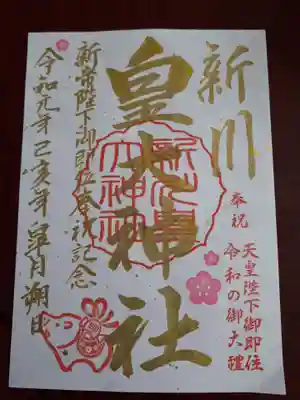 新川
奉祝
天皇陛下御即位
令和の御大禮
皇大神社
新帝陛下御即位奉祝記念
令和元年己亥年皐月朔日